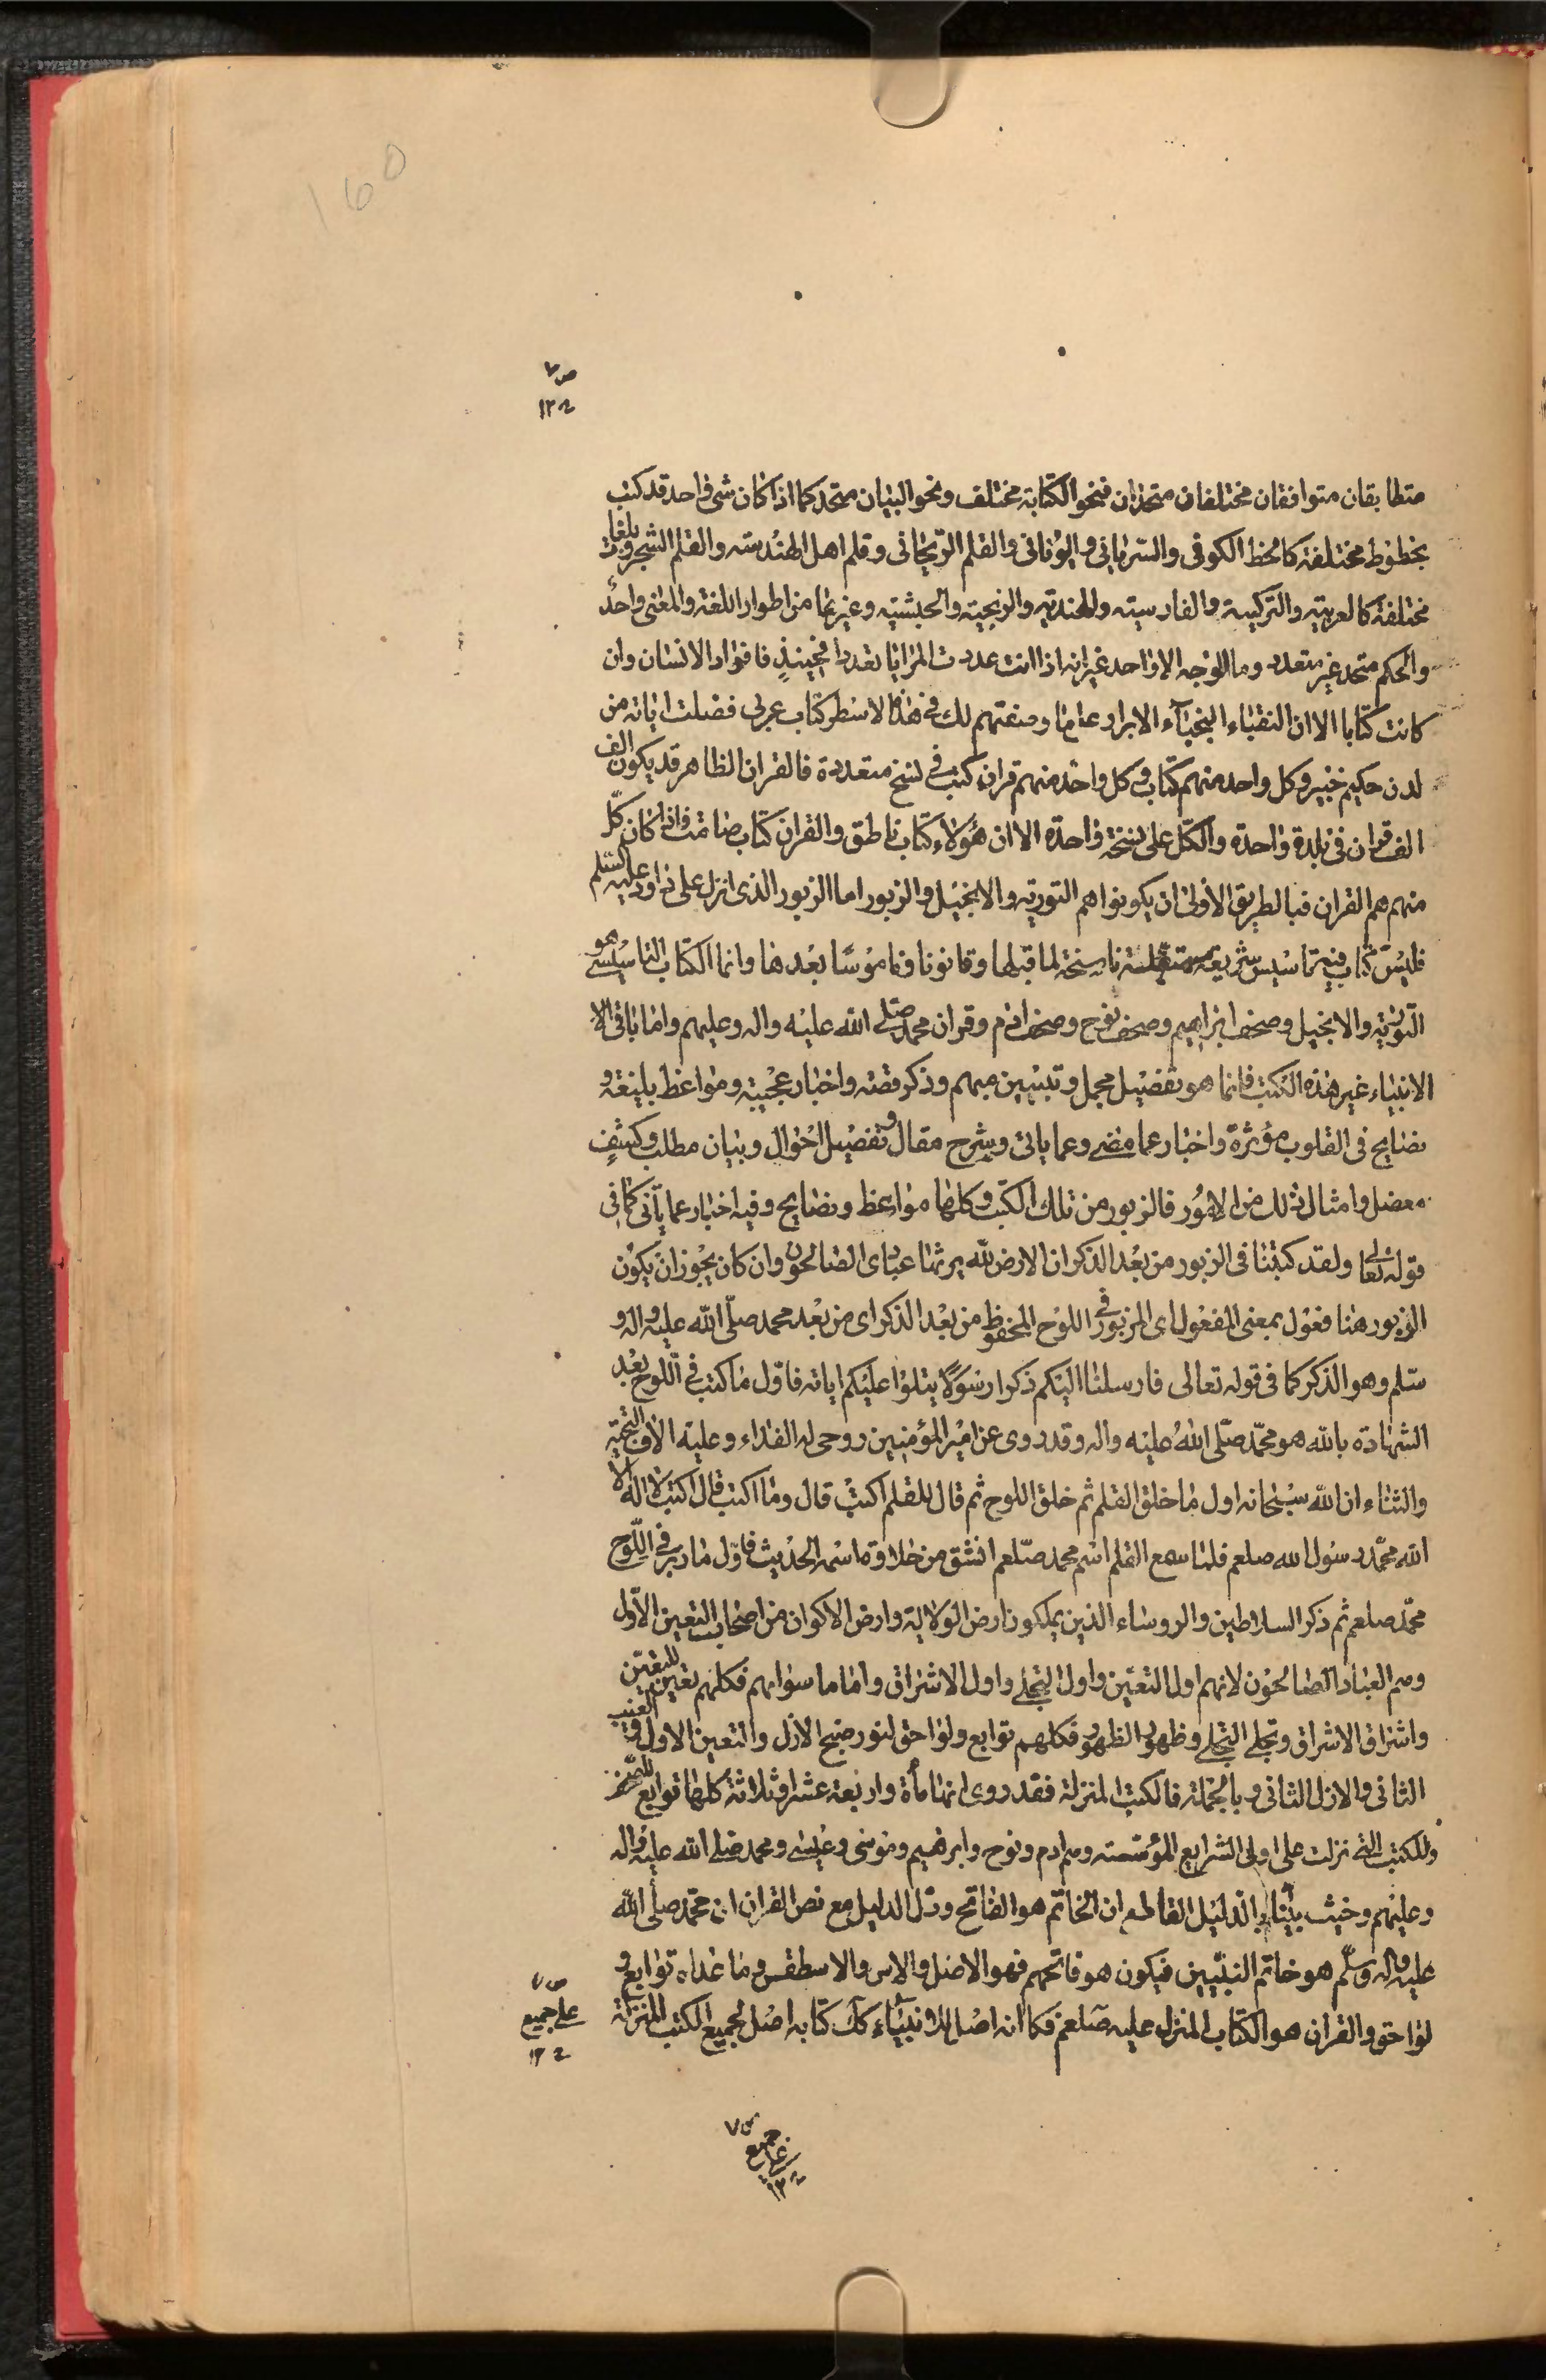 160
متطابقان متوافقان مختلفان متحدان فنحو الكتابة مختلف ونحو البيان متحد كما اذا كان شئ واحد قد كتب
بخطوط مختلفة كالخط الكوفى والسريانى واليونانى والقلم الريحانى وقلم اهل الهندسه والقلم الشجرى وبلغات
مختلفة كالعربيه والتركيه والفارسيه والهنديه والزنجيه والحبشيه وغيرها من اطوار اللغة والمعنى واحد
والحكم متحد غير متعدد وما الوجه الا واحد غير انه اذا انت عددت المرايا تعددا فحينئذ فافواد الانسان وان
كانت كتابا الا ان النقباء النجباء الابرار وصفتهم لك فى هذه الاسطر كتاب عربى فصلت اياته من
لدن حكيم خبير وكل واحد منهم كتاب وكل واحد منهم قران كتب فى نسخ متعددة فالقران الظاهر قد يكون الف
الف قران فى بلدة واحدة والكل على نسخة واحدة الا ان هؤلاء كتاب ناطق والقران كتاب صامت واذا كان كل
منهم هم القران فبالطريق الاولى ان يكونوا هم التورية والانجيل والزبور اما الزبور الذى انزل على داود عليه السلم
فليس كتاب فيه تاسيس شريعة مستقلة ناسخة لما قبلها وقانونا وناموسا بعدها وانما الكتاب التاسيسى هو
التورية والانجيل وصحف ابراهيم وصحف نوح وصحف ادم وقران محمد صلى الله عليه واله وعليهم واما باقى الا
الانبياء غير هذه الكتب فانما هو تفصيل مجمل وتبيين مبهم وذكر قصه واخبار عجيبة ومواعظ بليغة و
نصايح فى القلوب مؤثرة واخبار عما مضى وعما ياتى وشرح مقال وتفصيل احوال وبيان مطلب وكشف
معضل وامثال ذلك من الامور فالزبور من تلك الكتب وكلها مواعظ ونصايح وفيه اخبار عما ياتى كما فى
قوله تعالى ولقد كتبنا فى الزبور من بعد الذكر ان الارض لله يرثها عبادى الصالحون وان كان يجوز ان يكون
الزبور هنا فعول بمعنى المفعول اى المزبور فى اللوح المحفوظ من بعد الذكر اى من بعد محمد صلى الله عليه واله و
سلم وهو الذكر كما فى قوله تعالى فارسلنا اليكم ذكرا رسولا يتلوا عليكم اياته فاول ما كتب فى اللوح بعد
الشهادة بالله هو محمد صلى الله عليه واله وقد روى عن امير المؤمنين روحى له الفداء وعليه الاف التحية
والثناء ان الله سبحانه اول ما خلق القلم ثم خلق اللوح ثم قال للقلم اكتب قال وما اكتب قال اكتب لا اله الا
الله محمد رسول الله صلعم فلما سمع القلم اسم محمد صلعم انشق من حلاوة اسمه الحديث فاول ما دبر فى اللوح
محمد صلعم ثم ذكر السلاطين والروساء الذين يملكون ارض الولاية وارض الاكوان من اصحاب التعين الاول
وهم العباد الصالحون لانهم اول التعين واول التجلى واول الاشراق واما ما سواهم فكلهم تعين للتعين
واشراق الاشراق وتجلى التجلى وظهور الظهور فكلهم توابع ولواحق لنور صبح الازل والتعين الاول والغيب
الثانى والازل الثانى وبالجملة فالكتب المنزلة فقد روى انها مأة واربعة عشر وثلاثة كلها توابع
وللكتب التى نزلت على اولى الشرايع المؤسسه وهم ادم ونوح وابرهيم وموسى وعيسى ومحمد صلى الله عليه واله
وعليهم وحيث بينا بالدليل القاطع ان الخاتم هو الفاتح ودل الدليل مع نص القران ان محمد صلى الله
عليه واله وسلم هو خاتم النبيين فيكون هو فاتحهم فهو الاصل والاس والاسطقس وما عداه توابع و
لواحق والقران هو الكتاب المنزل عليه صلعم فكما انه اصل للانبياء كك كتابه اصل لجميع الكتب المنزلة
على جميع
على جميع